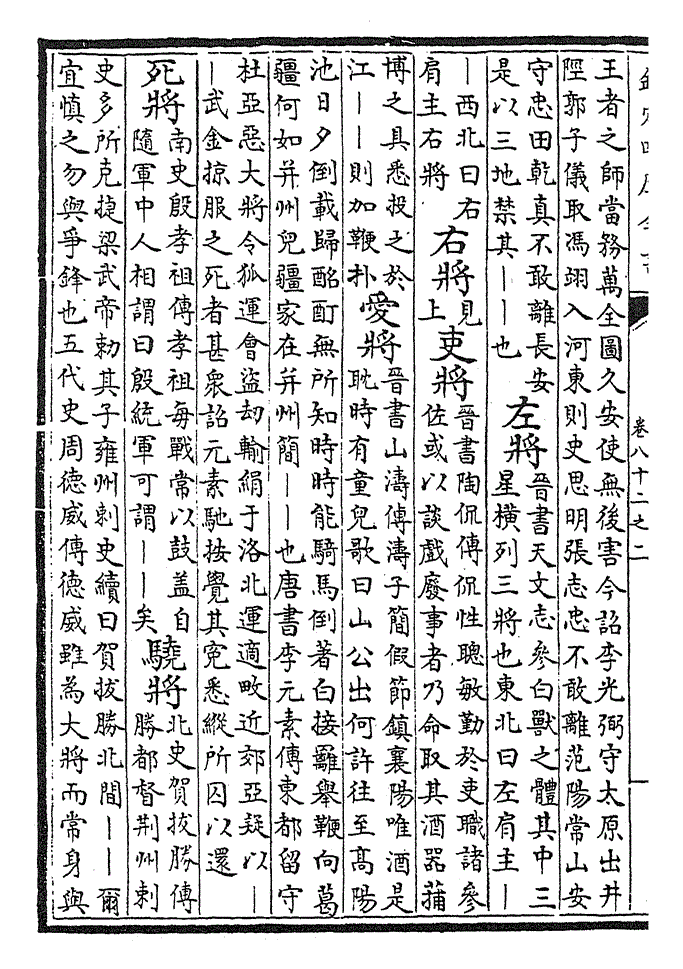 欽定四庫全書
卷八十二之二
王者之師當務萬全圖久安使無後害今詔李光弼守太原出井
陘郭子儀取馮翊入河東則史思明張志忠不敢離范陽常山安
守忠田乾真不敢離長安
是以三地禁其——也
左將
晉書天文志參白獸之體其中三
星橫列三將也東北曰左肩主—
—西北曰右
肩主右將
右將
見
上
吏將
晉書陶侃傳侃性聰敏勤於吏職諸參
佐或以談戲廢事者乃命取其酒器蒱
博之具悉投之於
江——則加鞭朴
愛將
晉書山濤傳濤子簡假節鎮襄陽唯酒是
耽時有童兒歌曰山公出何許往至高陽
池日夕倒載歸酩酊無所知時時能騎馬倒著白接䍦舉鞭向葛
疆何如并州兒疆家在并州簡——也唐書李元素傳東都留守
杜亞惡大將令狐運會盜刧輸絹于洛北運適畋近郊亞疑以—
—武金掠服之死者甚衆詔元素馳按覺其寃悉縱所囚以還
死將
南史殷孝祖傳孝祖每戰常以鼓蓋自
隨軍中人相謂曰殷統軍可謂——矣
驍將
北史賀拔勝傳
勝都督荆州刺
史多所克捷梁武帝勅其子雍州刺史續曰賀拔勝北間——爾
宜慎之勿與爭鋒也五代史周德威傳德威雖為大將而常身與